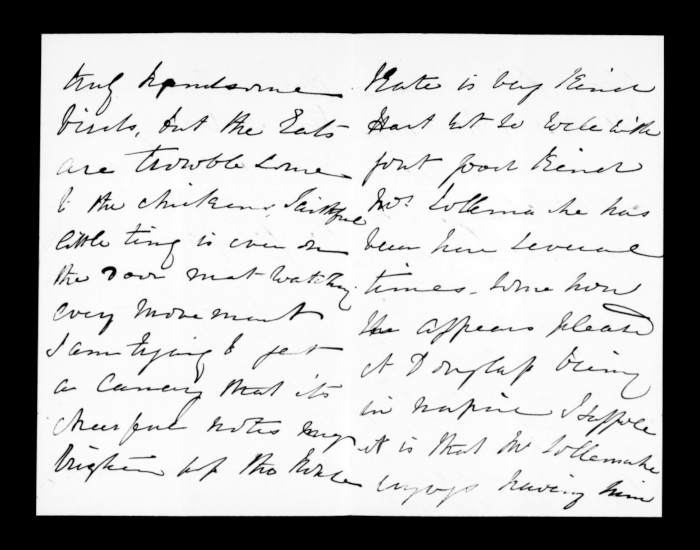 truly handsome
birds, but the Cats
are trowblesome
to the chickens, Faithful
little ting is ever on
the door mat watching
every movement
I am trying to get
a canary that its
cheerful notes may
brighten up the house
Kate is very kind
Hart not so well with
good kind
Mrs Tollemache has
been here several
times. Some how
she appears pleased
at Douglass being
in Napier I suppose
it is that Mr Tollemache
enjoys having him